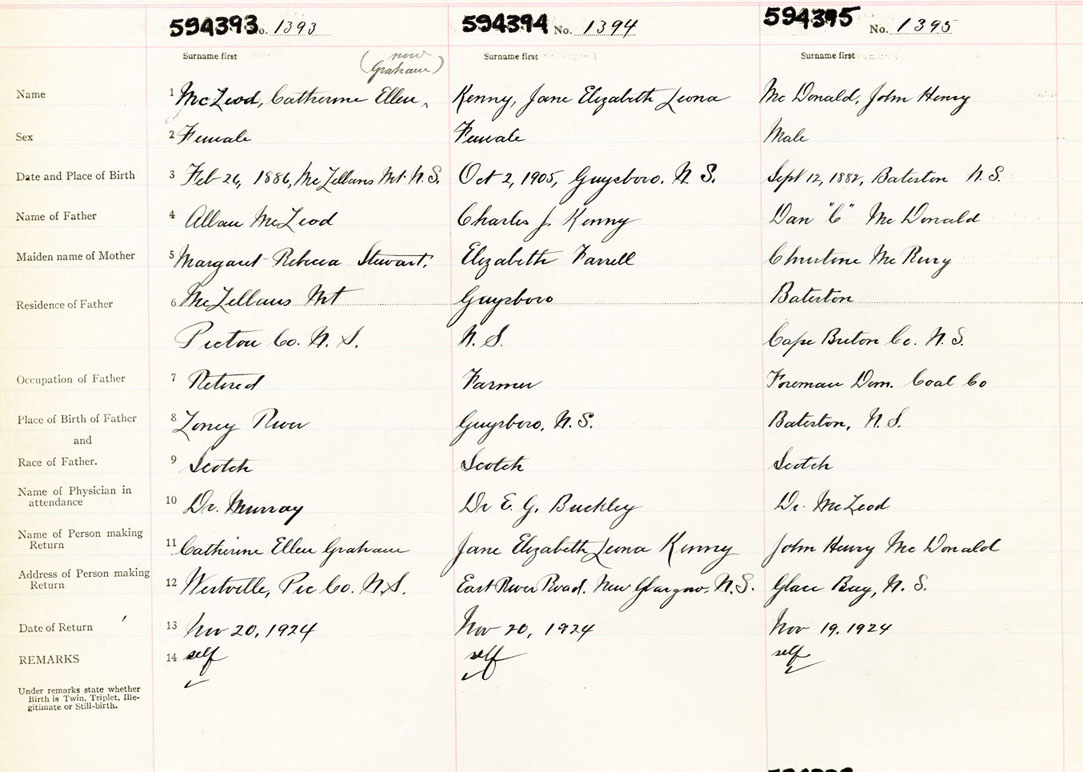 594393 o. 1393 594394 No. 1394 594395 No. 1395
Surname first (now Graham) Surname first Surname first
Name 1 McLeod, Catherine Ellen, Kenny, Jane Elizabeth Leona Mc Donald, John Henry
Sex 2 Female Female Male
Date and Place of Birth 3 Feb 26, 1886, McLellans Mt. N.S. Oct 2, 1905, Guysboro. N.S. Sept 12, 1882, Bateston N.S.
Name of Father 4 Allan McLeod Charles J. Kenny Dan "C" Mc Donald
Maiden name of Mother 5 Margaret Rebecca Stewart. Elizabeth Farrell Christine Mc
Residence of Father 6 McLellans Mt Guysboro Bateston
Pictou Co. N.S. N.S. Cape Breton Co. N.S.
Occupation of Father 7 Retired Farmer Foreman Dom. Coal Co
Place of Birth of Father 8 River Guysboro, N.S. Bateston, N.S.
and
Race of Father. 9 Scotch Scotch Scotch
Name of Physician in attendance 10 Dr. Murray Dr E. G. Buckley Dr. McLeod
Name of Person making Return 11 Catherine Ellen Graham Jane Elizabeth Leona Kenny John Henry Mc Donald
Address of Person making Return 12 Westville, Pic Co. N.S. East River Road. New Glasgow. N.S. Glace Bay, N.S.
Date of Return 13 Nov 20, 1924 Nov 20, 1924 Nov 19, 1924
REMARKS 14 self self self
Under remarks state whether
Birth is Twin, Triplet, Ille-
gitimate or Still-birth.